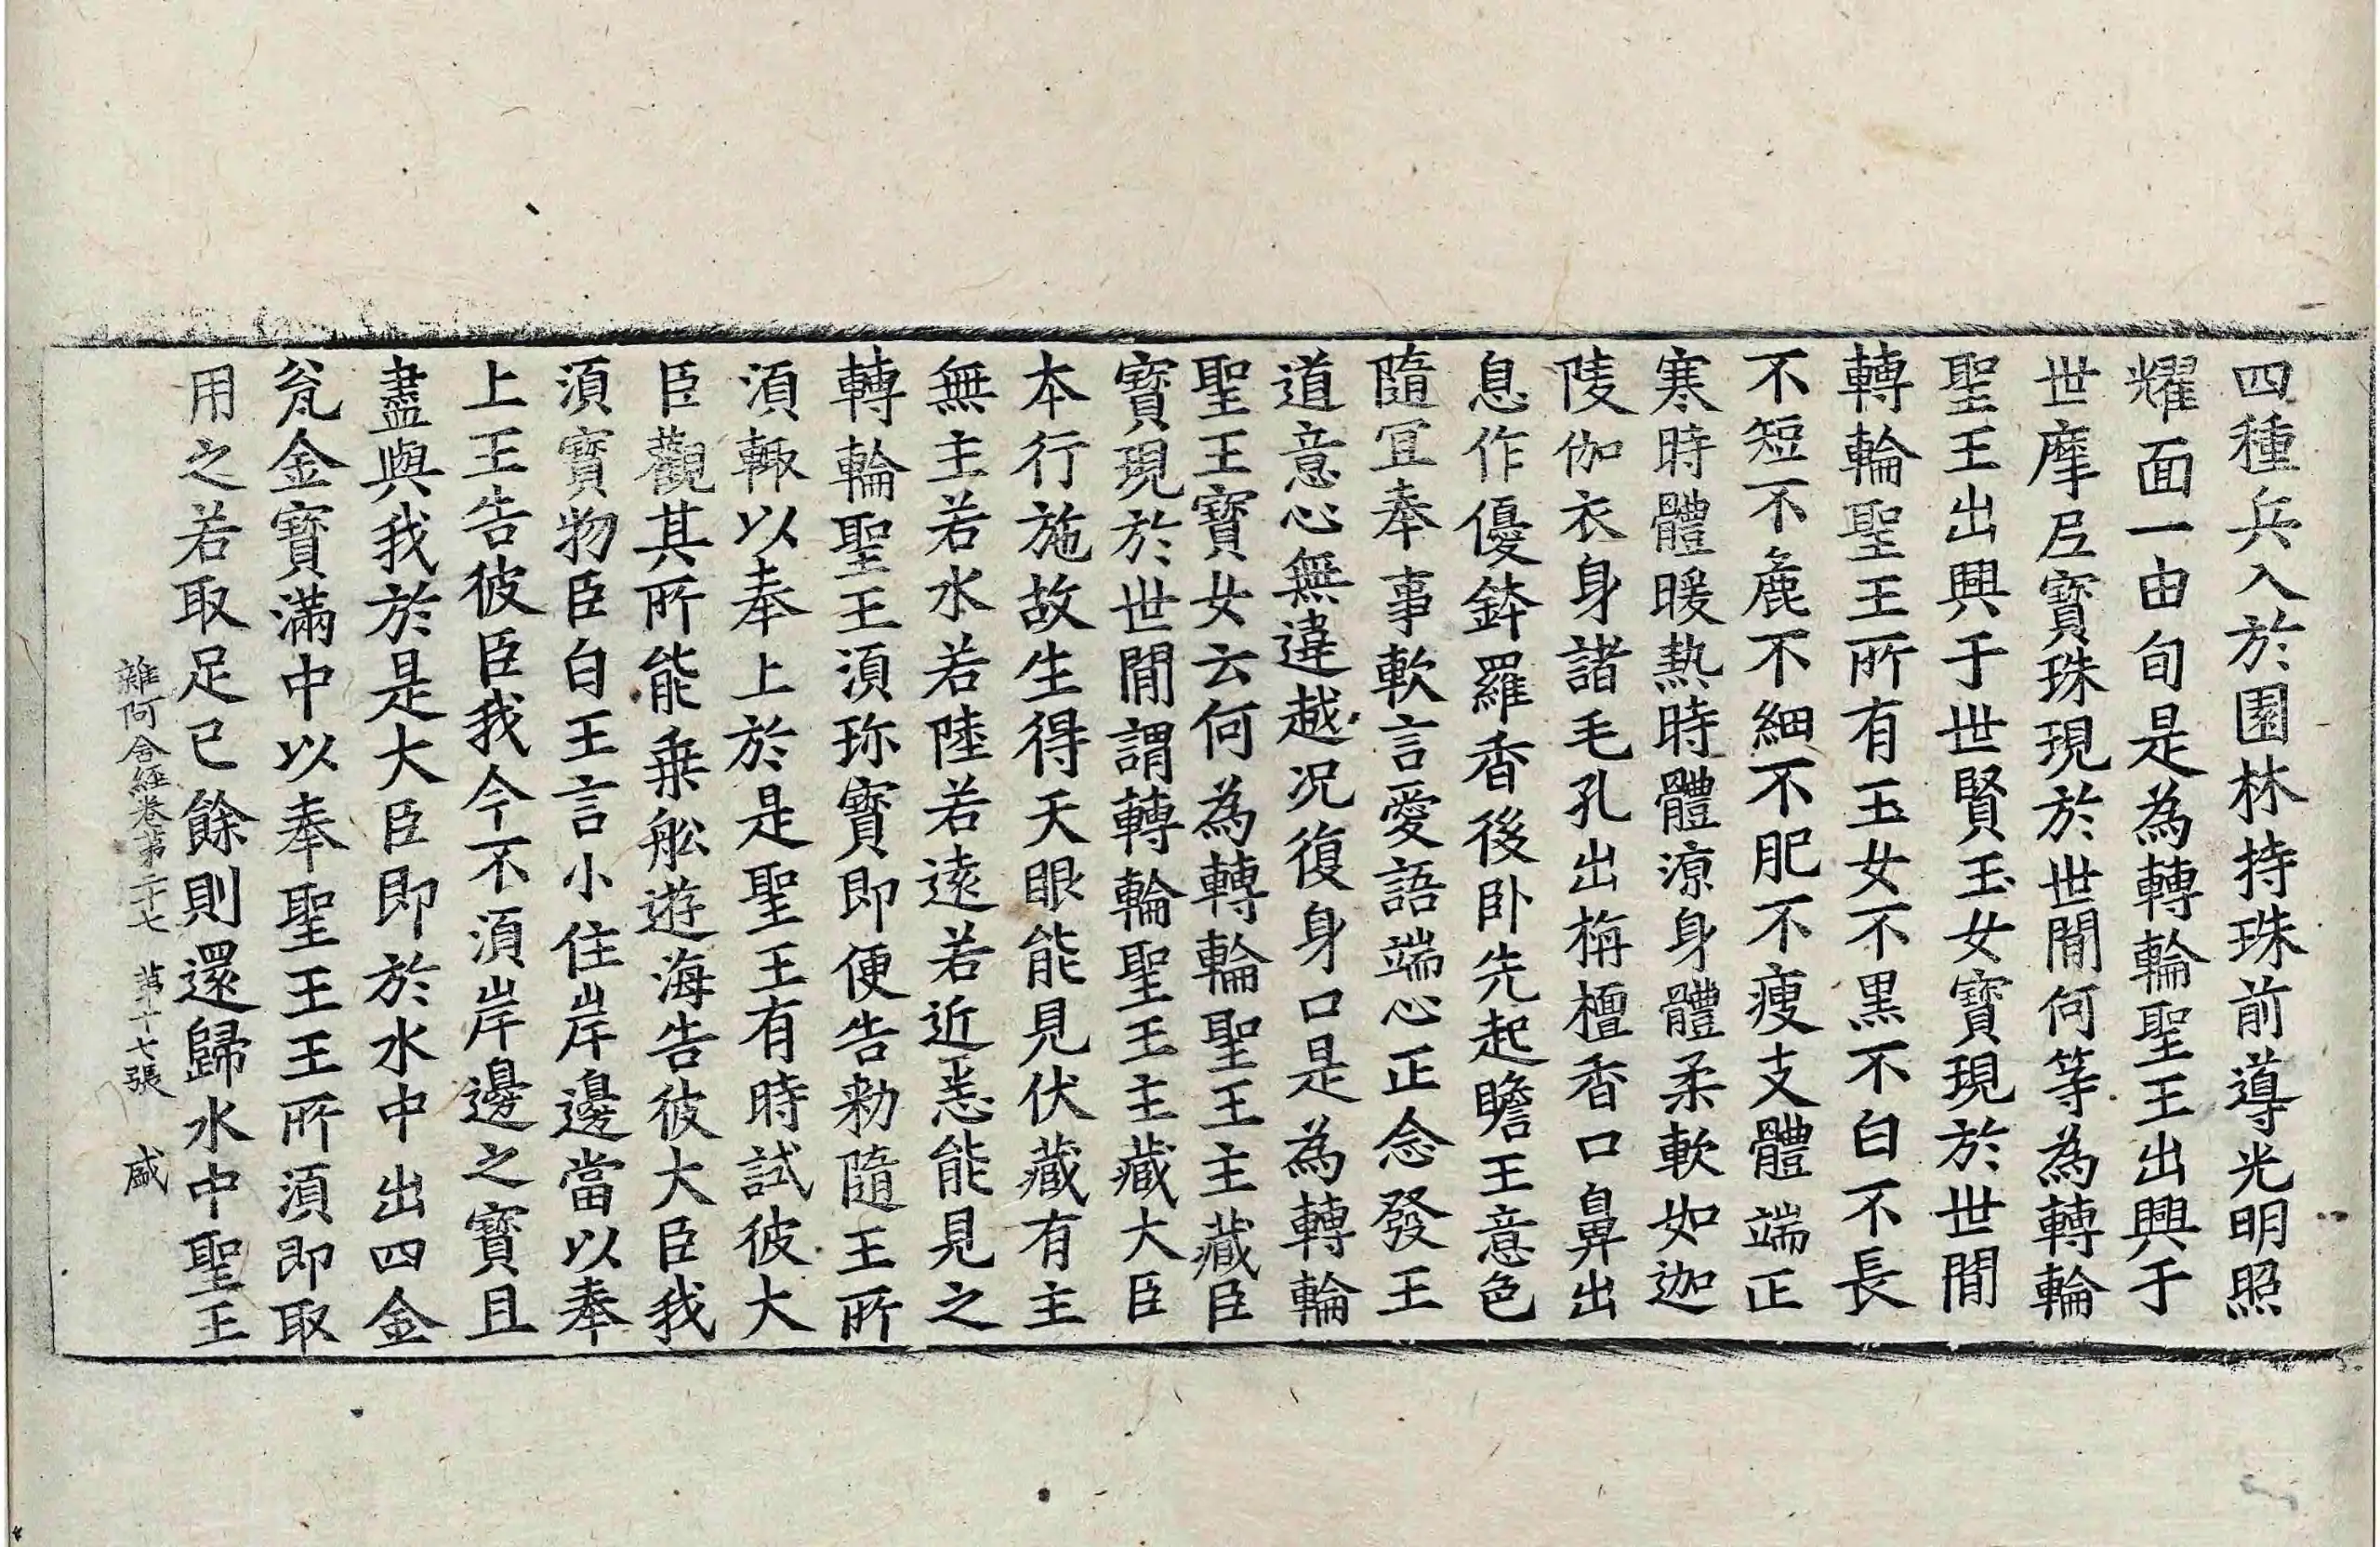 四種兵入於園林持珠前導光明照
耀面一由旬是為轉輪聖王出興于
世摩尼寶珠現於世閒何等為轉輪
聖王出興于世賢玉女寶現於世閒
轉輪聖王所有玉女不黑不白不長
不短不麁不細不肥不瘦支體端正
寒時體暖熱時體凉身體柔軟如迦
陵伽衣身諸毛孔出栴檀香口鼻出
息作優鉢羅香後卧先起瞻王意色
隨冝奉事軟言愛語端心正念發王
道意心無違越况復身口是為轉輪
聖王寶女云何為轉輪聖王主藏臣
寶現於世閒謂轉輪聖王主藏大臣
本行施故生得天眼能見伏藏有主
無主若水若陸若遠若近悉能見之
轉輪聖王須珎寶即便告勑隨王所
須輙以奉上於是聖王有時試彼大
臣觀其所能乗舩遊海告彼大臣我
須寶物臣白王言小住岸邊當以奉
上王告彼臣我今不須岸邊之寶且
盡與我於是大臣即於水中出四金
瓮金寶滿中以奉聖王王所須即取
用之若取足已餘則還歸水中聖王
雜阿含經卷第二十七 第十七張 盛